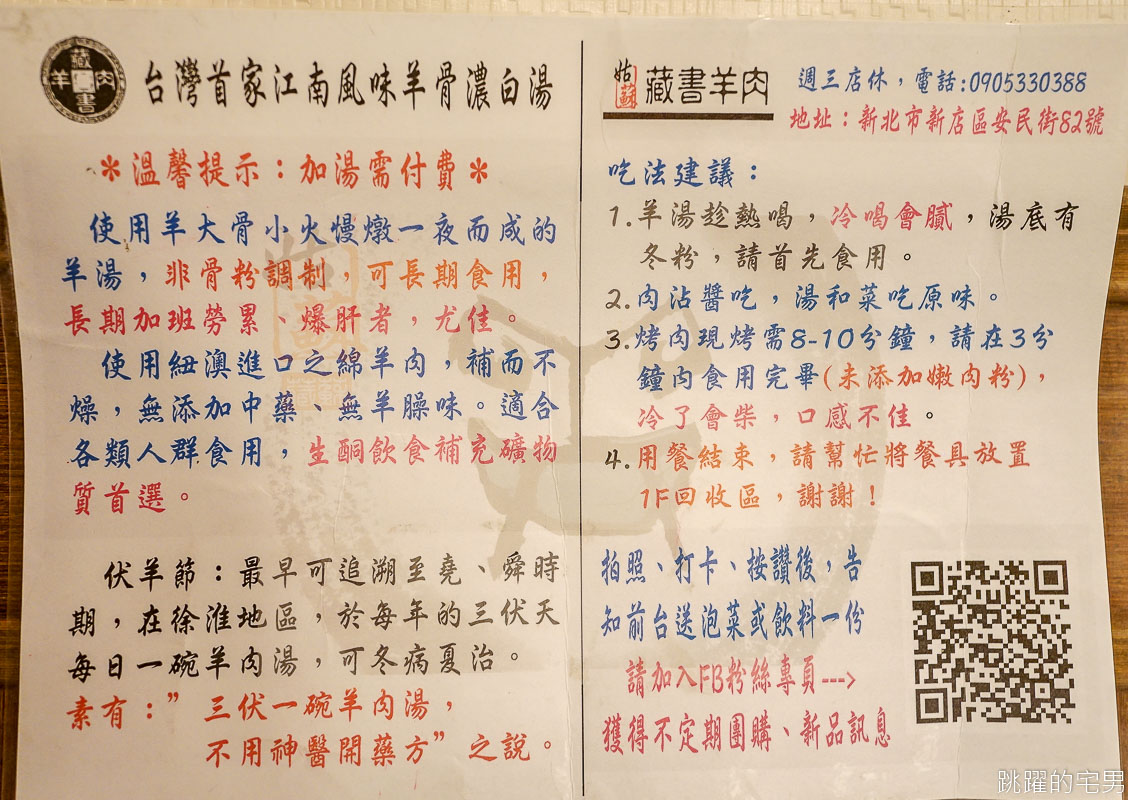 藏
羊 肉
書
台灣首家江南風味羊骨濃白湯
*溫馨提示：加湯需付費*
使用羊大骨小火慢燉一夜而成的
羊湯，非骨粉調制，可長期食用，
長期加班勞累、爆肝者，尤佳。
使用紐澳進口之綿羊肉，補而不
燥，無添加中藥、無羊臊味。適合
各類人群食用，生酮飲食補充礦物
質首選。
伏羊節：最早可追溯至堯、舜時
期，在徐淮地區，於每年的三伏天
每日一碗羊肉湯，可冬病夏治。
素有：”三伏一碗羊肉湯，
不用神醫開藥方”之說。
姑蘇 藏書羊肉
週三店休，電話:0905330388
地址：新北市新店區安民街82號
吃法建議：
1.羊湯趁熱喝，冷喝會膩，湯底有
冬粉，請首先食用。
2.肉沾醬吃，湯和菜吃原味。
3.烤肉現烤需8-10分鐘，請在3分
鐘內食用完畢(未添加嫩肉粉)，
冷了會柴，口感不佳。
4.用餐結束，請幫忙將餐具放置
1F回收區，謝謝！
拍照、打卡、按讚後，告
知前台送泡菜或飲料一份
請加入FB粉絲專頁--->
獲得不定期團購、新品訊息
跳躍的宅男